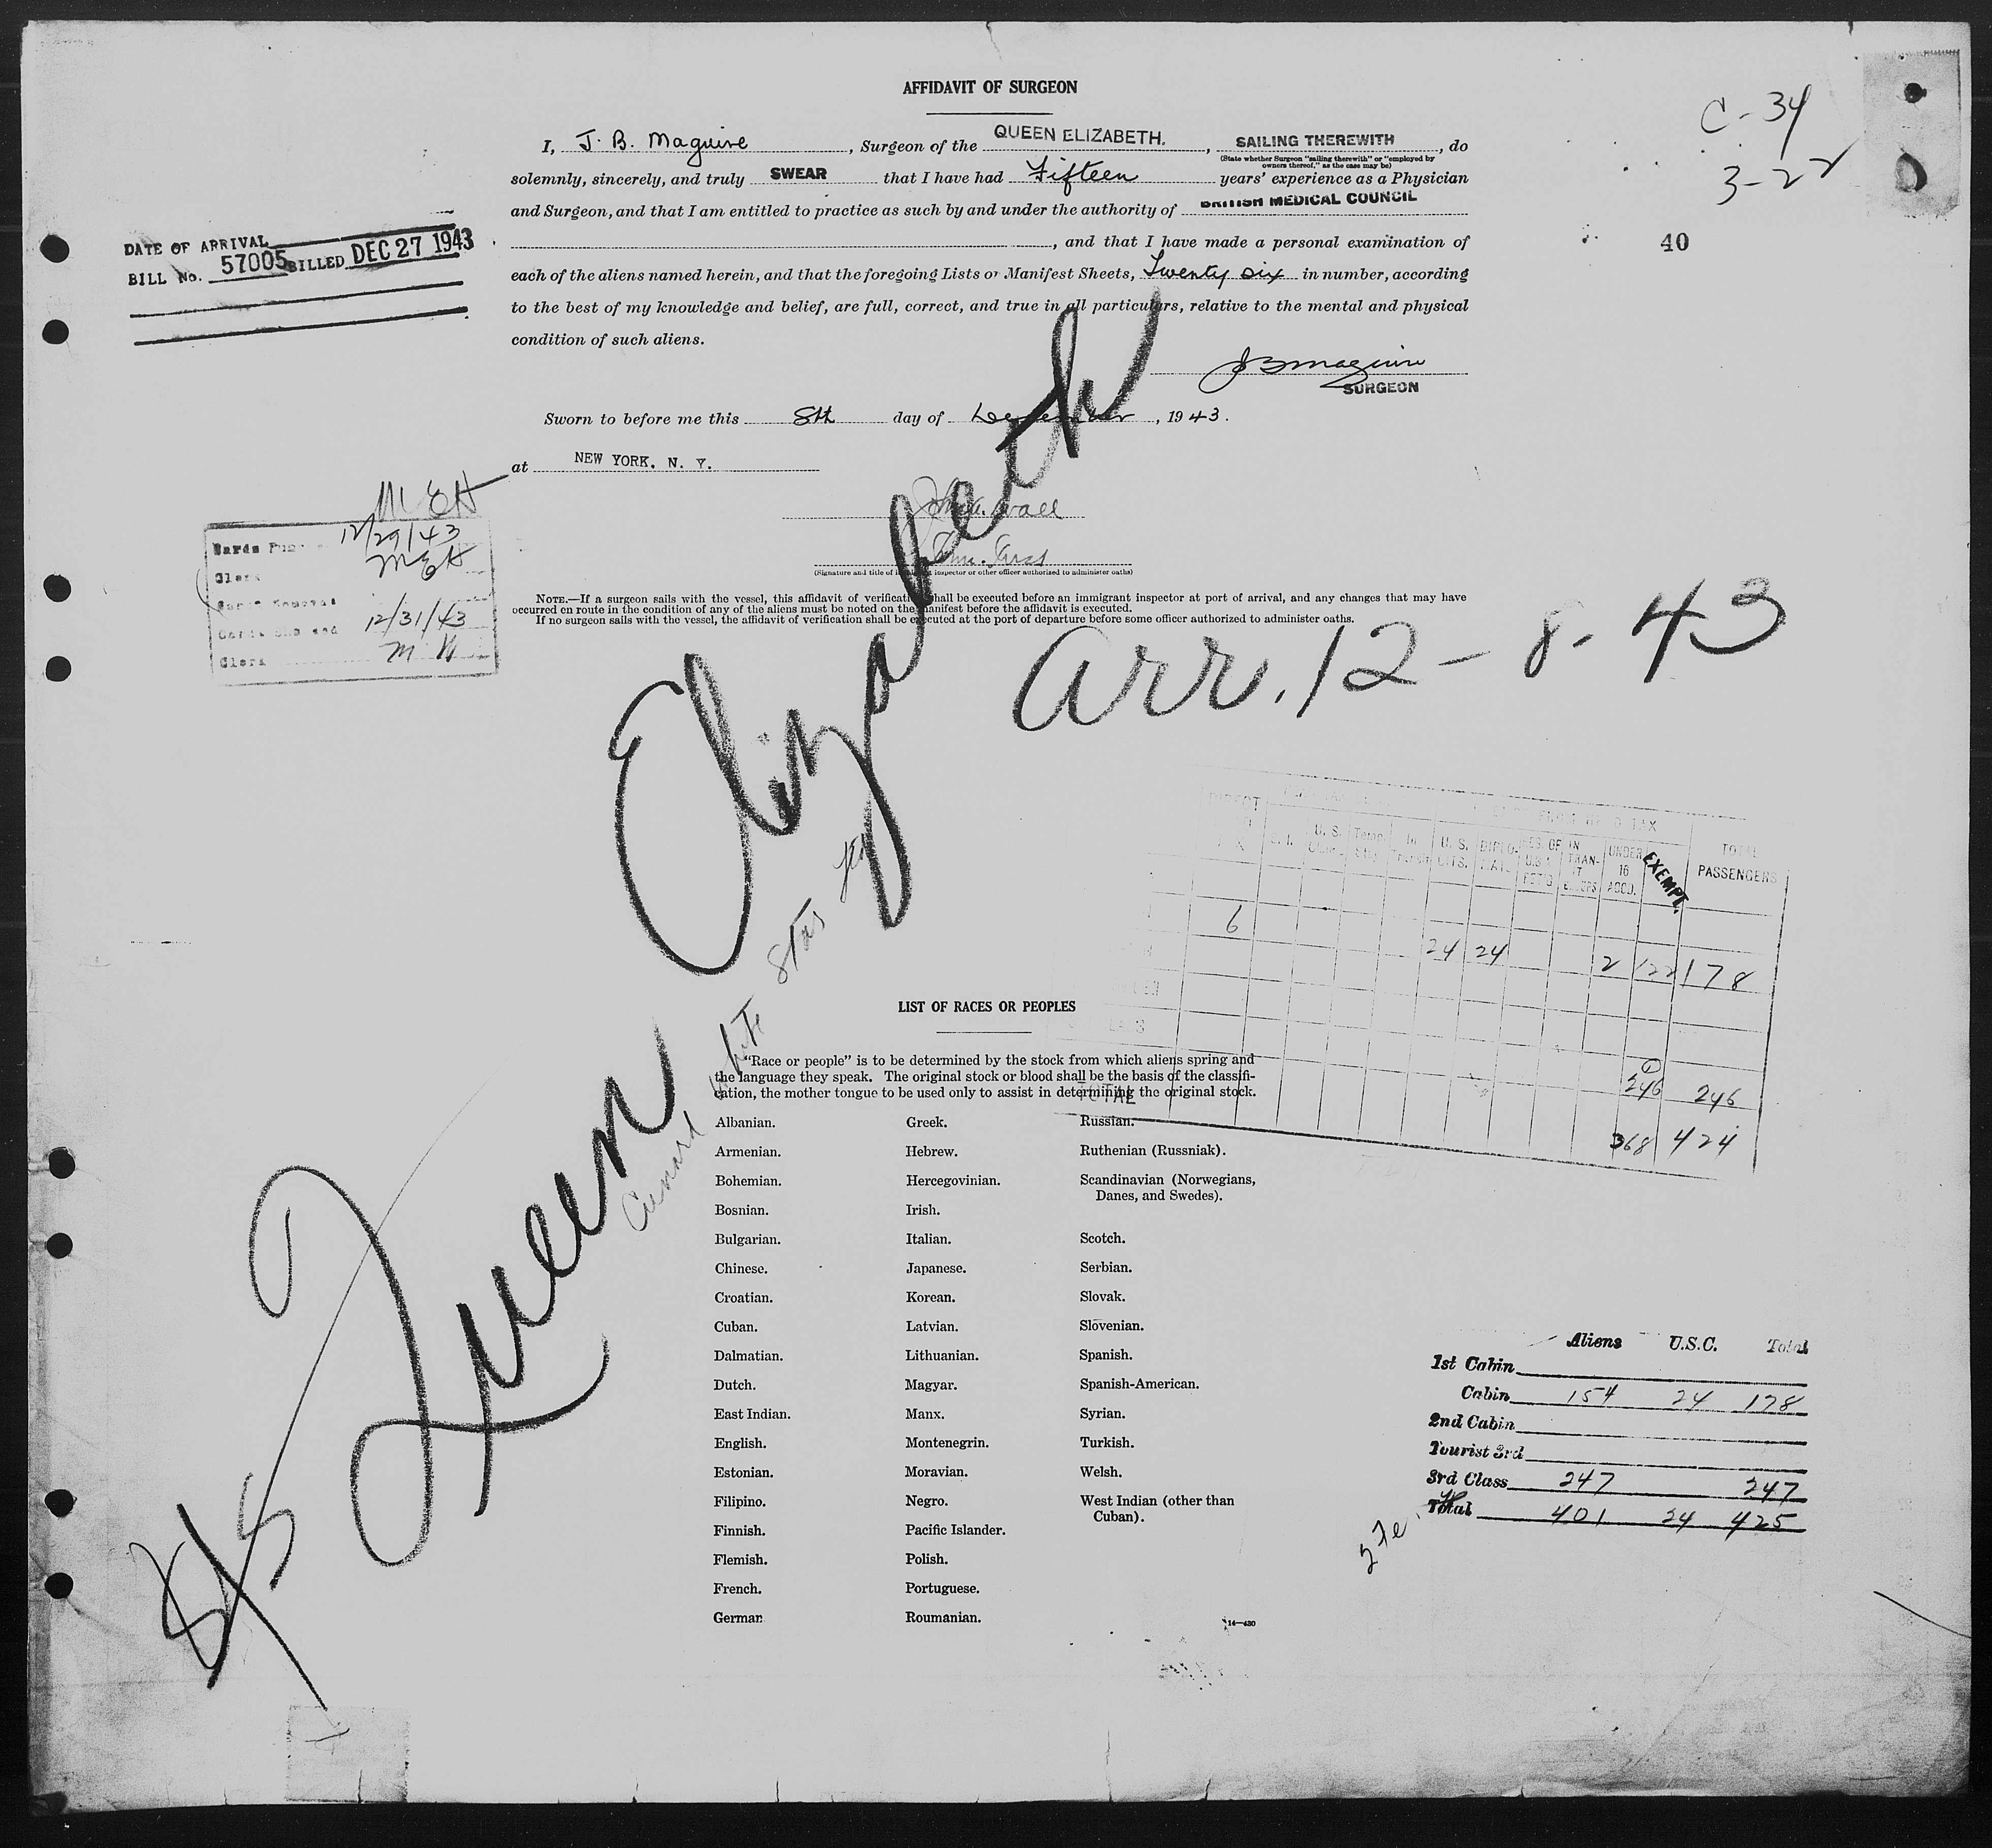 AFFIDAVIT OF SURGEON
C-34
3-22
I, J. B. Maguire, Surgeon of the QUEEN ELIZABETH., SAILING THEREWITH, do
(State whether Surgeon "sailing therewith" or "employed by
owners thereof," as the case may be)
solemnly, sincerely, and truly SWEAR that I have had Fifteen years' experience as a Physician
and Surgeon, and that I am entitled to practice as such by and under the authority of BRITISH MEDICAL COUNCIL
, and that I have made a personal examination of
40
each of the aliens named herein, and that the foregoing Lists or Manifest Sheets, Twenty six in number, according
to the best of my knowledge and belief, are full, correct, and true in all particulars, relative to the mental and physical
condition of such aliens.
DATE OF ARRIVAL
BILL No. 57005 BILLED DEC 27 1943
J B Maguire
SURGEON
Sworn to before me this 8th day of December, 1943.
at NEW YORK, N. Y.
MEH
12/29/43
Clerk MEH
12/31/43
Clerk
(Signature and title of immigrant inspector or other officer authorized to administer oaths)
NOTE.—If a surgeon sails with the vessel, this affidavit of verification shall be executed before an immigrant inspector at port of arrival, and any changes that may have
occurred en route in the condition of any of the aliens must be noted on the manifest before the affidavit is executed.
If no surgeon sails with the vessel, the affidavit of verification shall be executed at the port of departure before some officer authorized to administer oaths.
arr. 12-8-43
S/S Queen Elizabeth
Cunard White Star
TAX
U.S. Temp. In U.S. DIPLO- IN UNDER EXEMPT. TOTAL
CITS. TRAN- 16 PASSENGERS
ACCD.
6
24 24 2 122 178
246 246
TOTAL
368 424
LIST OF RACES OR PEOPLES
"Race or people" is to be determined by the stock from which aliens spring and
the language they speak. The original stock or blood shall be the basis of the classifi-
cation, the mother tongue to be used only to assist in determining the original stock.
Albanian. Greek. Russian.
Armenian. Hebrew. Ruthenian (Russniak).
Bohemian. Hercegovinian. Scandinavian (Norwegians,
Danes, and Swedes).
Bosnian. Irish.
Bulgarian. Italian. Scotch.
Chinese. Japanese. Serbian.
Croatian. Korean. Slovak.
Cuban. Latvian. Slovenian.
Dalmatian. Lithuanian. Spanish.
Dutch. Magyar. Spanish-American.
East Indian. Manx. Syrian.
English. Montenegrin. Turkish.
Estonian. Moravian. Welsh.
Filipino. Negro. West Indian (other than
Cuban).
Finnish. Pacific Islander.
Flemish. Polish.
French. Portuguese.
German Roumanian.
14—430
Aliens U.S.C. Total
1st Cabin
Cabin 154 24 178
2nd Cabin
Tourist 3rd
3rd Class 247 247
Total 401 24 425